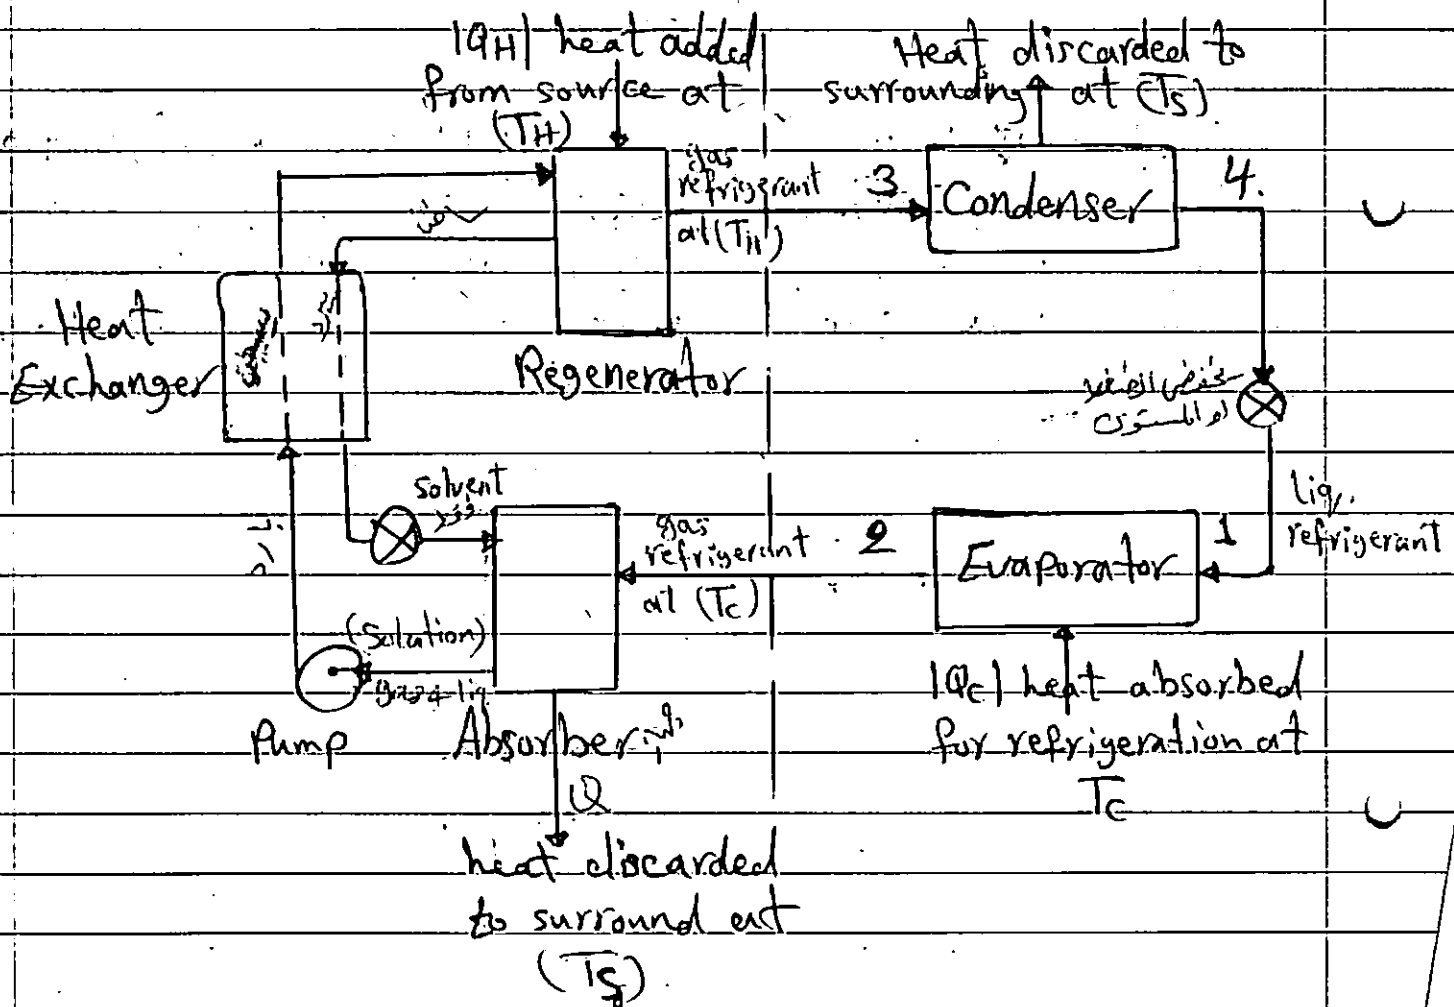 |QH| heat added
from source at
(TH)
Heat discarded to
surrounding at (TS)
gas
refrigerant
at (TH)
3
Condenser
4.
Heat
Exchanger
Regenerator
solvent
gas
refrigerant
at (TC)
2
Evaporator
1
liq.
refrigerant
(Solution)
gas + liq
Pump
Absorber
Q
|QC| heat absorbed
for refrigeration at
TC
heat discarded
to surround at
(TS)